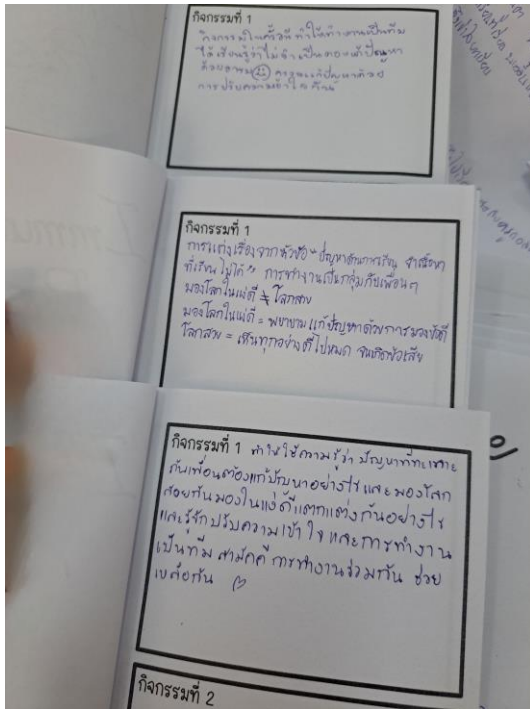 กิจกรรมที่ 1
กิจกรรมในครั้งนี้ ทำให้ทำงานเป็นทีม
ได้เรียนรู้ว่าไม่จำเป็นต้องแก้ปัญหา
ด้วยอารมณ์ ควรจะแก้ปัญหาด้วย
การปรับความเข้าใจกัน
กิจกรรมที่ 1
การแต่งเรื่องจากหัวข้อ "ปัญหาด้านการเรียน จากเนื้อหา
ที่เรียนไม่ได้" การทำงานเป็นกลุ่มกับเพื่อนๆ
มองโลกในแง่ดี ≠ โลกสวย
มองโลกในแง่ดี = พยายามแก้ปัญหาด้วยการมองข้อดี
โลกสวย = เห็นทุกอย่างดีไปหมด จนเกิดข้อเสีย
กิจกรรมที่ 1 ทำให้ใช้ความรู้ว่า ปัญหาที่ทะเลาะ
กันเพื่อนต้องแก้ปัญหาอย่างไร และมองโลก
สวยกับมองในแง่ดีแตกแต่งกันอย่างไร
และรู้จักปรับความเข้าใจ และการทำงาน
เป็นทีม สามัคคี การทำงานร่วมกัน ช่วย
เหลือกัน
กิจกรรมที่ 2